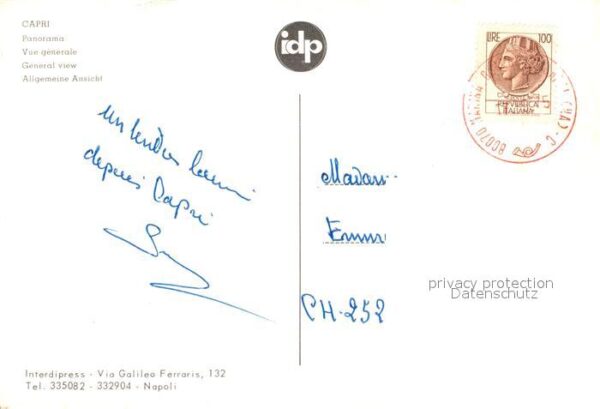 CAPRI
Panorama
Vue générale
General view
Allgemeine Ansicht
idp
LIRE 100
REPVBBLICA
ITALIANA
80070 MARINA
(NA) - C
un tendre
depuis Capri
Madam
Emm
CH-252
privacy protection
Datenschutz
Interdipress - Via Galileo Ferraris, 132
Tel. 335082 - 332904 - Napoli